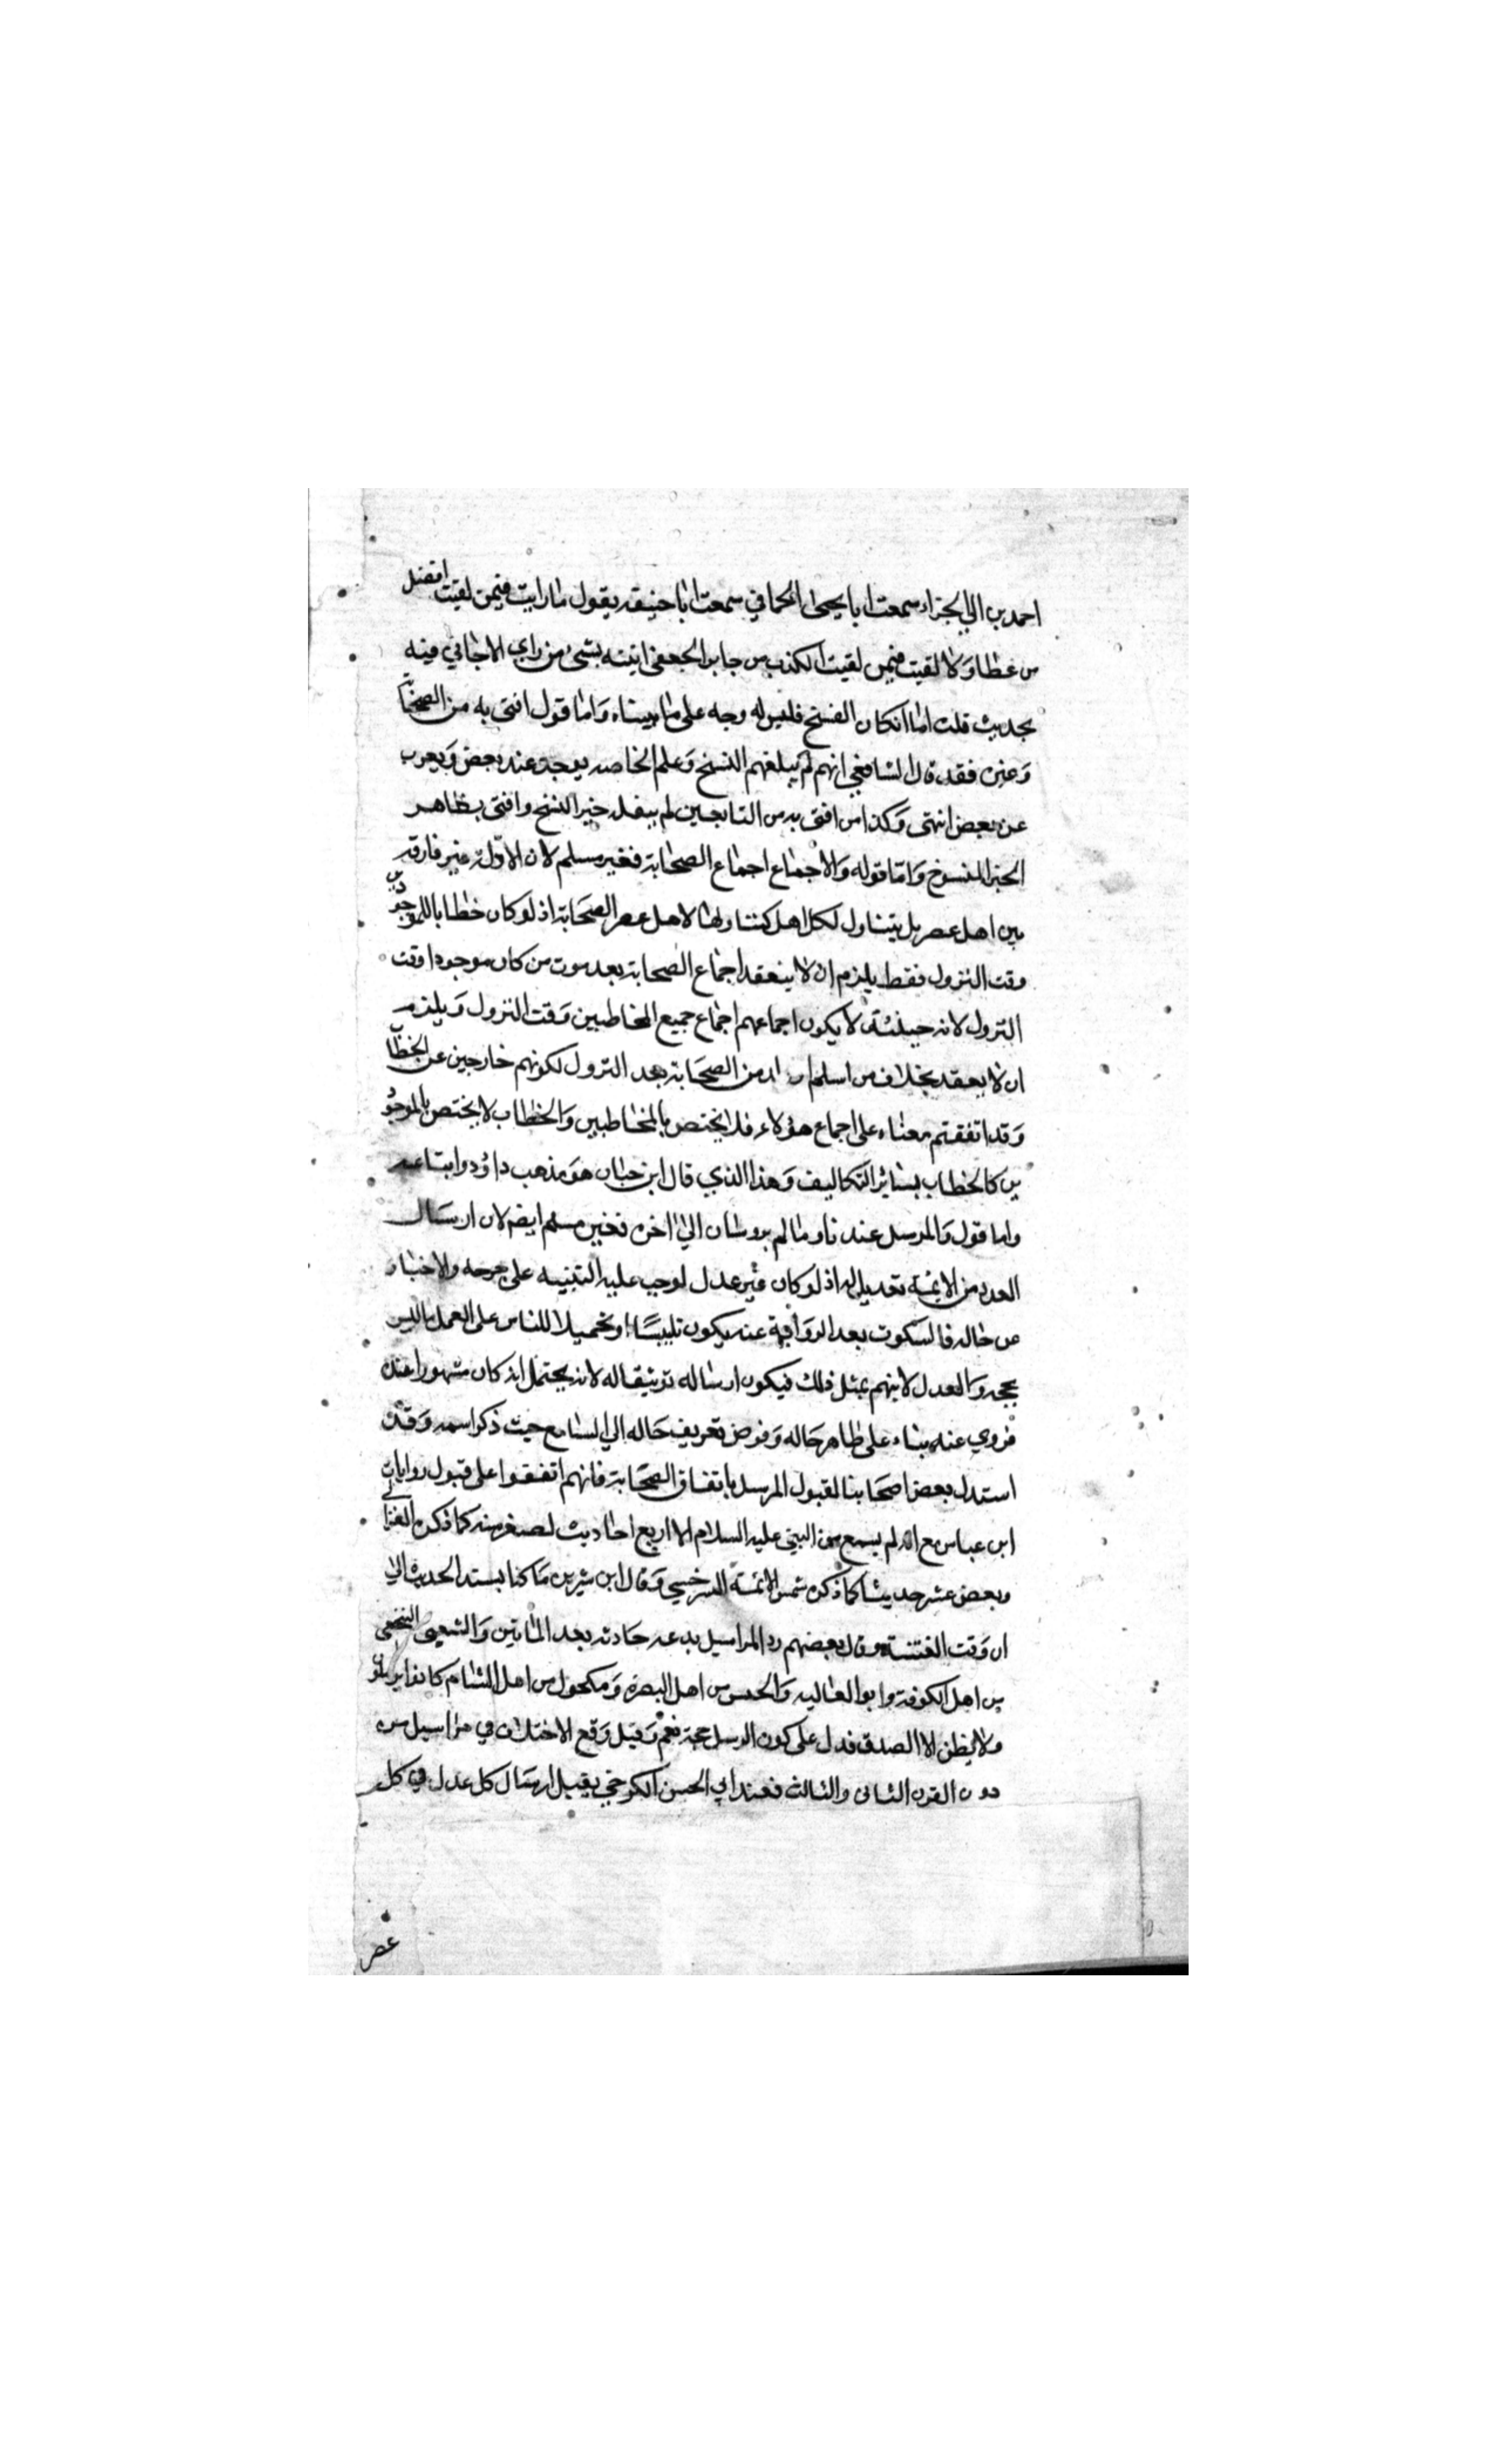 احمد بن ابي الجزاء سمعت ابا يحيى الحماني سمعت ابا حنيفة يقول ما رايت فيمن لقيت افضل
من عطا ولا لقيت فيمن لقيت اكذب من جابر الجعفي اتيته بشيء من راي الا جاني فيه
بحديث قلت اما انكان الفسخ فليس له وجه على ما بيناه واما قول افتى به من الصحابة
وغيره فقد قال الشافعي انهم لم يبلغهم النسخ وعلم الخاصة يوجد عند بعض ويعرب
عن بعض انتهى وكذا من افتى به من التابعين لم يبلغه خبر النسخ وافتى بظاهر
الخبر المنسوخ واما قوله والاجماع اجماع الصحابة فغير مسلم لان الادلة غير فارقة
بين اهل عصر بل يتناول لكل اهل كتناولها لاهل عصر الصحابة اذ لو كان خطابا للموجودين
وقت النزول فقط يلزم ان لا ينعقد اجماع الصحابة بعد موت من كان موجودا وقت
النزول لانه حينئذ لا يكون اجماعهم اجماع جميع المخاطبين وقت النزول ويلزم
ان لا يعقد بخلاف من اسلم من الصحابة بعد النزول لكونهم خارجين عن الخطاب
وقد اتفقتم معناه على اجماع هؤلاء فلا يختص بالمخاطبين والخطاب لا يختص بالموجود
ين كالخطاب بسائر التكاليف وهذا الذي قال ابن حبان هو مذهب داؤد واتباعه
واما قول والمرسل عندنا وما لم يرو سان الى اخره فغير مسلم ايضا لان ارسال
العدد من الائمة تعديل له اذ لو كان غير عدل لوجب عليه التنبيه على جرحه والاخبار
عن حاله فالسكوت بعد الرواية عنه يكون تلبيسا او تحميلا للناس على العمل بما ليس
بحجة والعدل لا يتهم بمثل ذلك فيكون ارساله توثيقا له لانه يحتمل انه كان مشهورا عنده
فروي عنه بناء على ظاهر حاله وفوض تعريف حاله الي السامع حيث ذكر اسمه وقد
استدل بعض اصحابنا لقبول المرسل باتفاق الصحابة فانهم اتفقوا على قبول روايات
ابن عباس مع انه لم يسمع من النبي عليه السلام الا اربع احاديث لصغر سنه كما ذكره الغزالي
وبعض عشر حديثا كما ذكره شمس الائمة السرخسي وقال ابن سيرين ما كنا نسند الحديث الي
ان وقت الفتنة وقال بعضهم رد المراسيل بدعة حادثة بعد المائتين والشعبي النخعي
من اهل الكوفة وابو العالية والحسن من اهل البصرة ومكحول من اهل الشام كانوا يرسلون
ولا يظن الا الصدق فدل على كون المرسل حجة نعم وقيل وقع الاختلاف في مراسيل من
دون القرن الثانى والثالث فعند ابي الحسن الكرخي يقبل ارسال كل عدل في كل
عصر